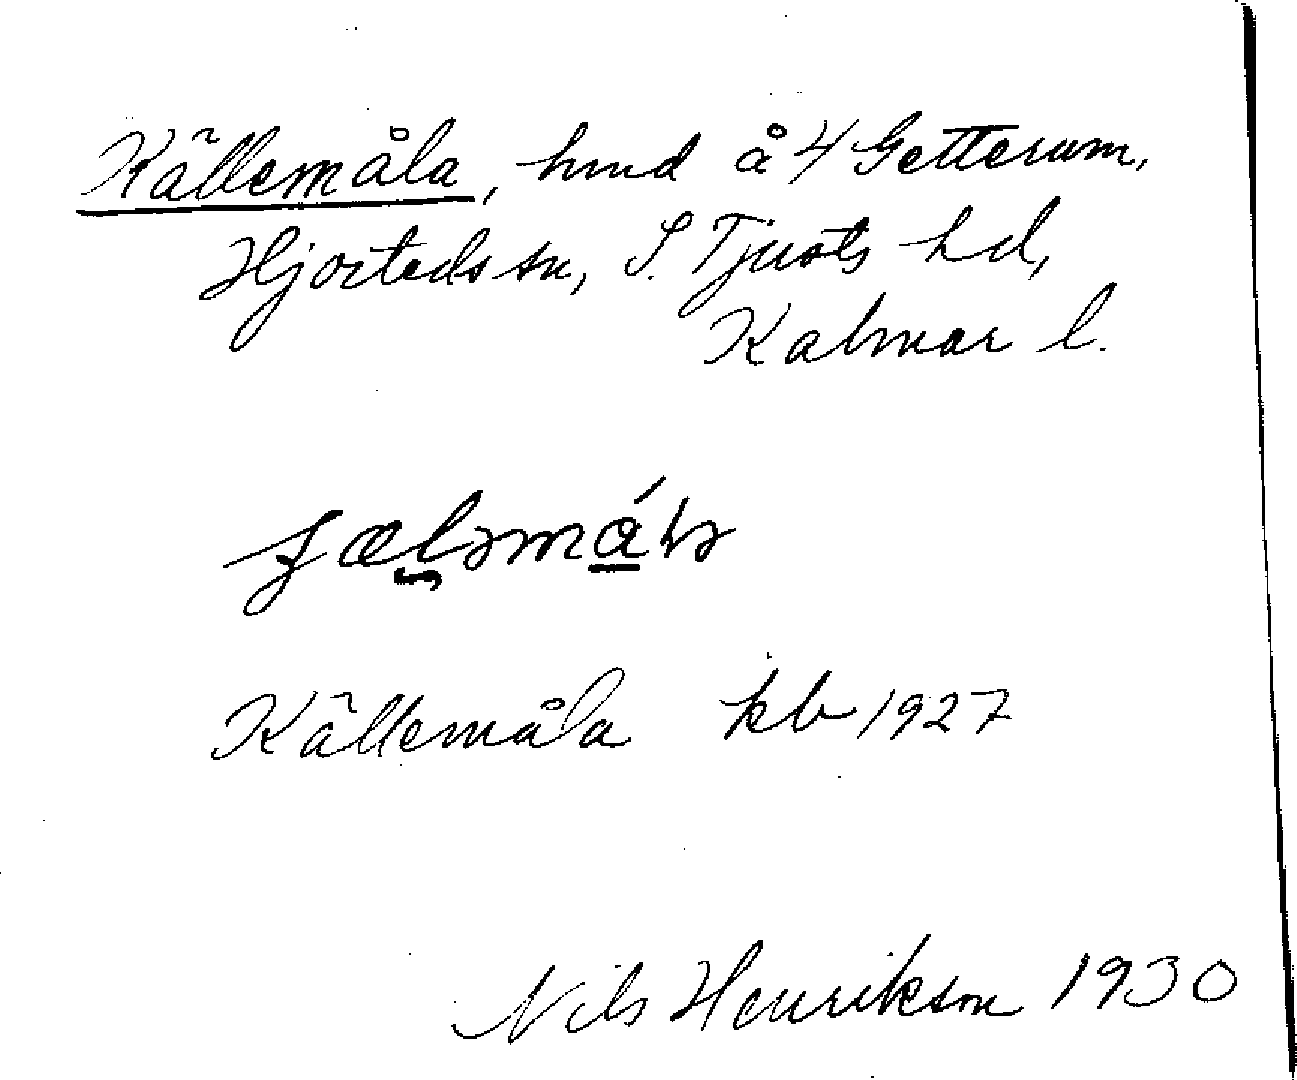 Källemåla, hmd å 4 Getterum,
Hjorteds sn, S. Tjusts hd,
Kalmar l.
Källemåla kb 1927
Nils Henrikson 1930